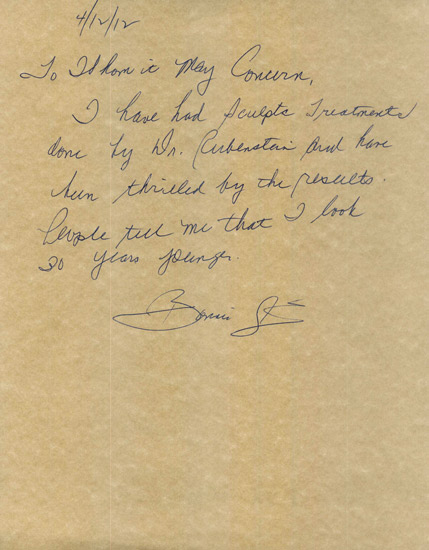 4/12/12
To Whom it May Concern,
I have had Sculptra Treatments
done by Dr. Rubenstein and have
been thrilled by the results.
People tell me that I look
30 years younger.